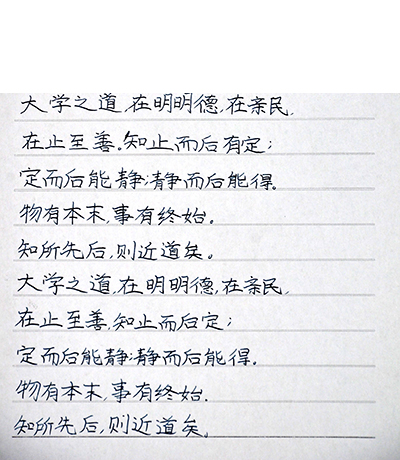 大学之道,在明明德,在亲民,
在止至善。知止而后有定;
定而后能静;静而后能得。
物有本末,事有终始。
知所先后,则近道矣。
大学之道,在明明德,在亲民,
在止至善,知止而后定;
定而后能静;静而后能得。
物有本末,事有终始.
知所先后,则近道矣。